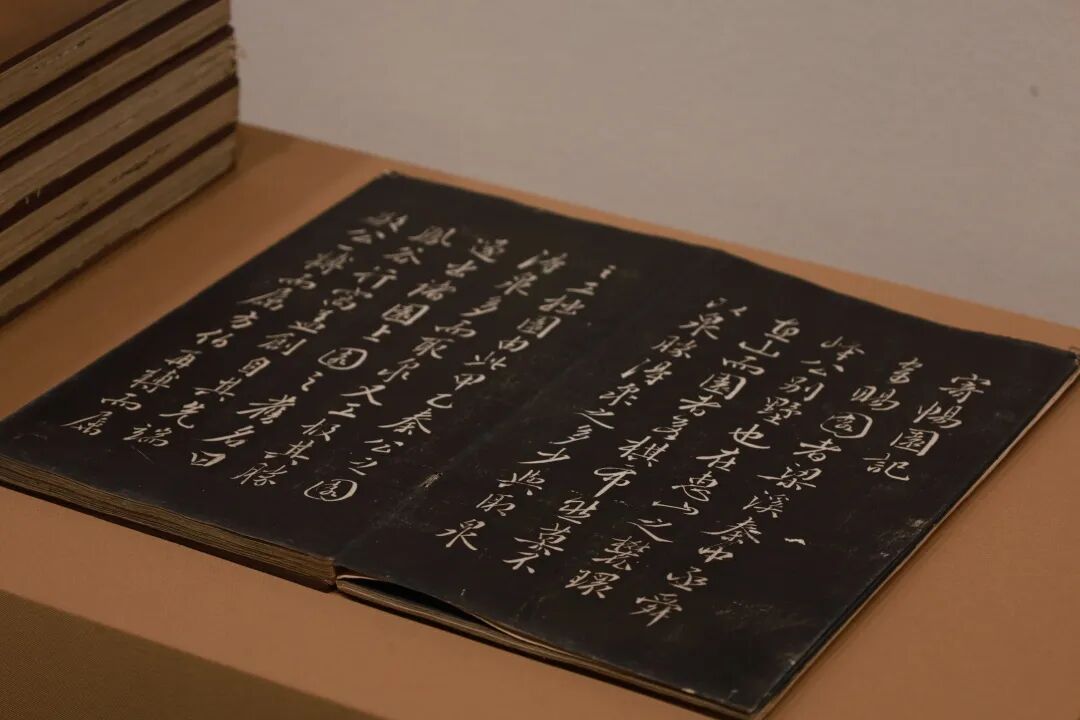 寄暢園記
寄暢園者梁溪秦中丞舜
峰公別墅也在惠山之麓環
惠山而園者若棋布然莫不
以泉勝得泉之多少與取泉
之工拙園由此甲乙秦公之園
得泉多而取泉又工故其勝
遂出諸園上園之舊名曰
鳳谷行窩蓋創自其先端
敏公轉而屬方伯再轉而屬